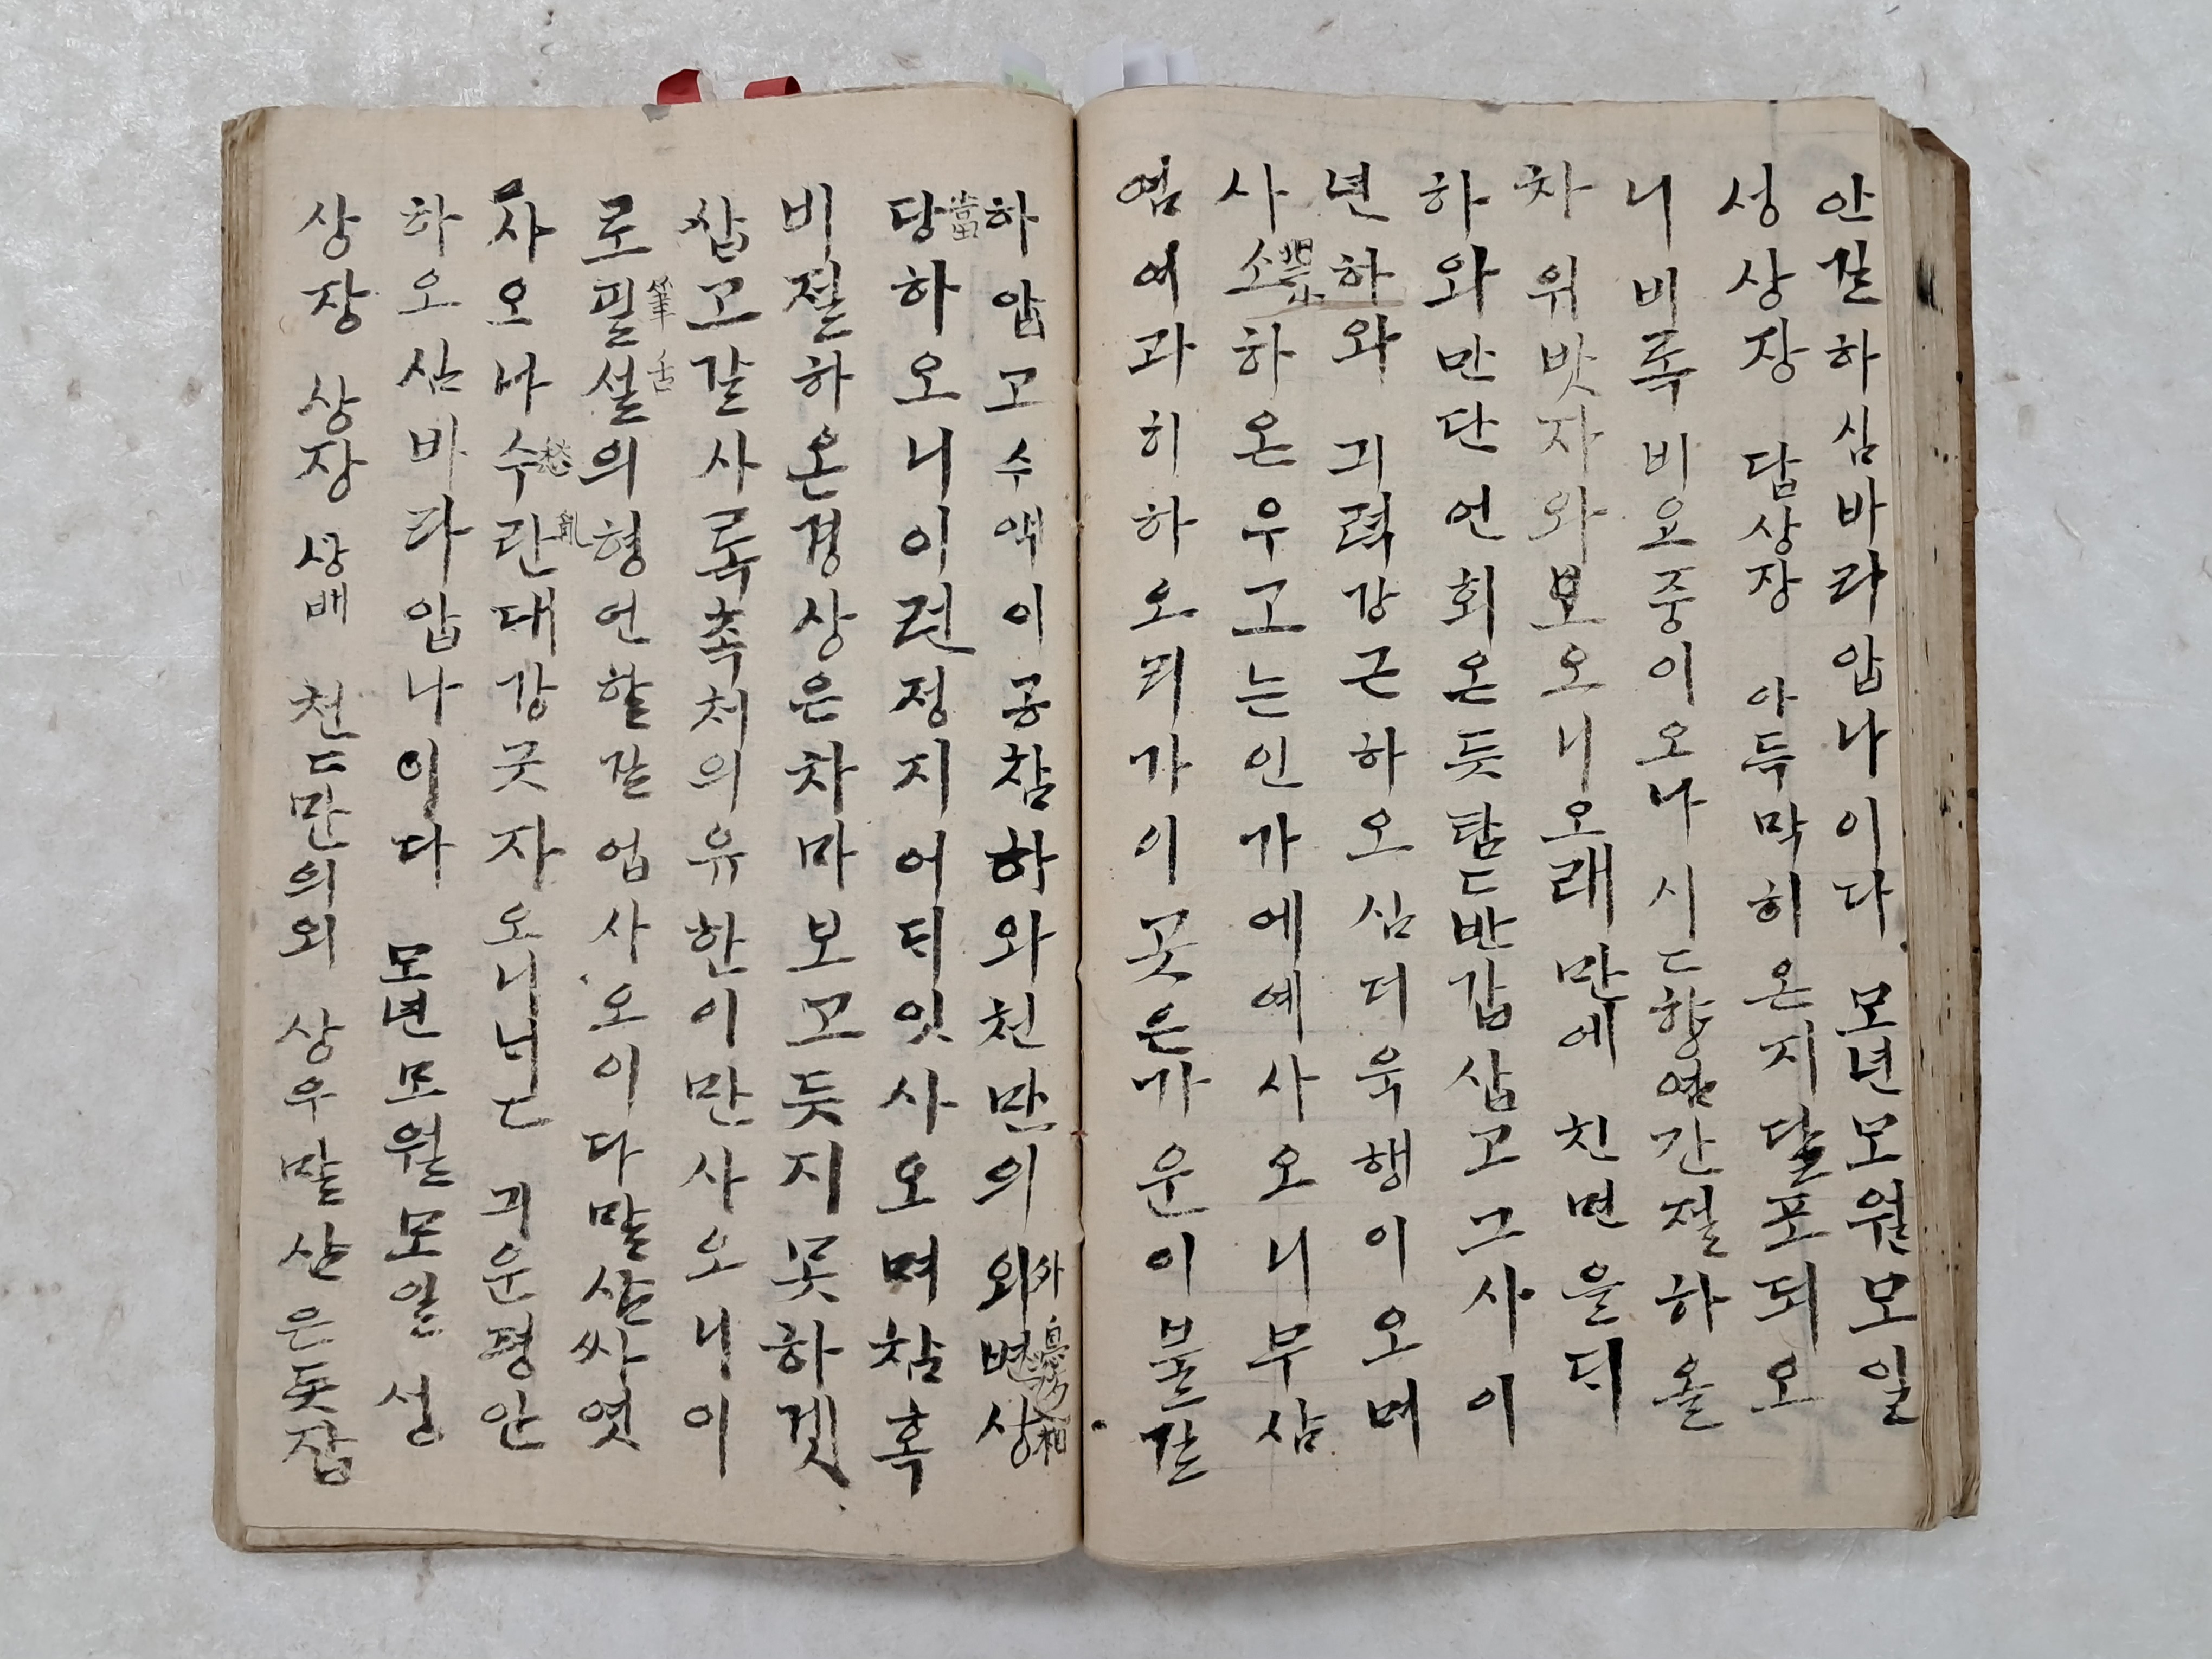 안길하심바라압나이다 모년모월모일
성상장 답상장 아득막히온지달포되오
니비록비요중이오나시ᄃ향염간절하올
차위밧자와보오니오래만에친면을듸
하와만단언회온듯탐ᄃ반갑삽고그사이
년하와긔력강근하오심더욱행이오며
사소하온우고는인가에예사오니부삼
염여과히하오릿가이곳은가운이불길
하압고수액이공참하와천만의외外변상
당當하오니이련정지어듸잇사오며참혹
비절하온경상은차마보고듯지못하겟
삽고갈사록촉처의유한이만사오니이
로필筆설舌의형언할길업사오이다말삼싸엿
사오나수愁란亂대강긋자오니ᄂᆡᄂᆡᄃ 긔운평안
하오심바라압나이다 모년모월모일 성
상장 상장 상배 천ᄃ만의외 상우말삼은듯잡